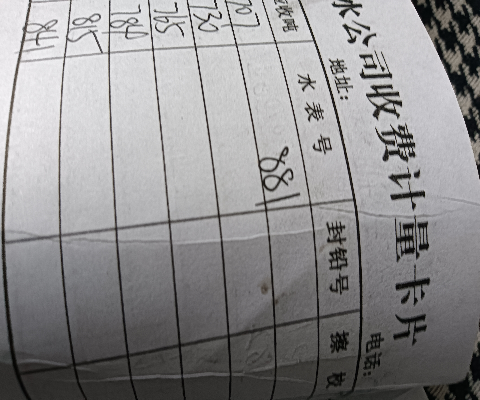 水公司收费计量卡片
地址: 电话:
水表号 封铅号
707 881
730
765
784
815
841